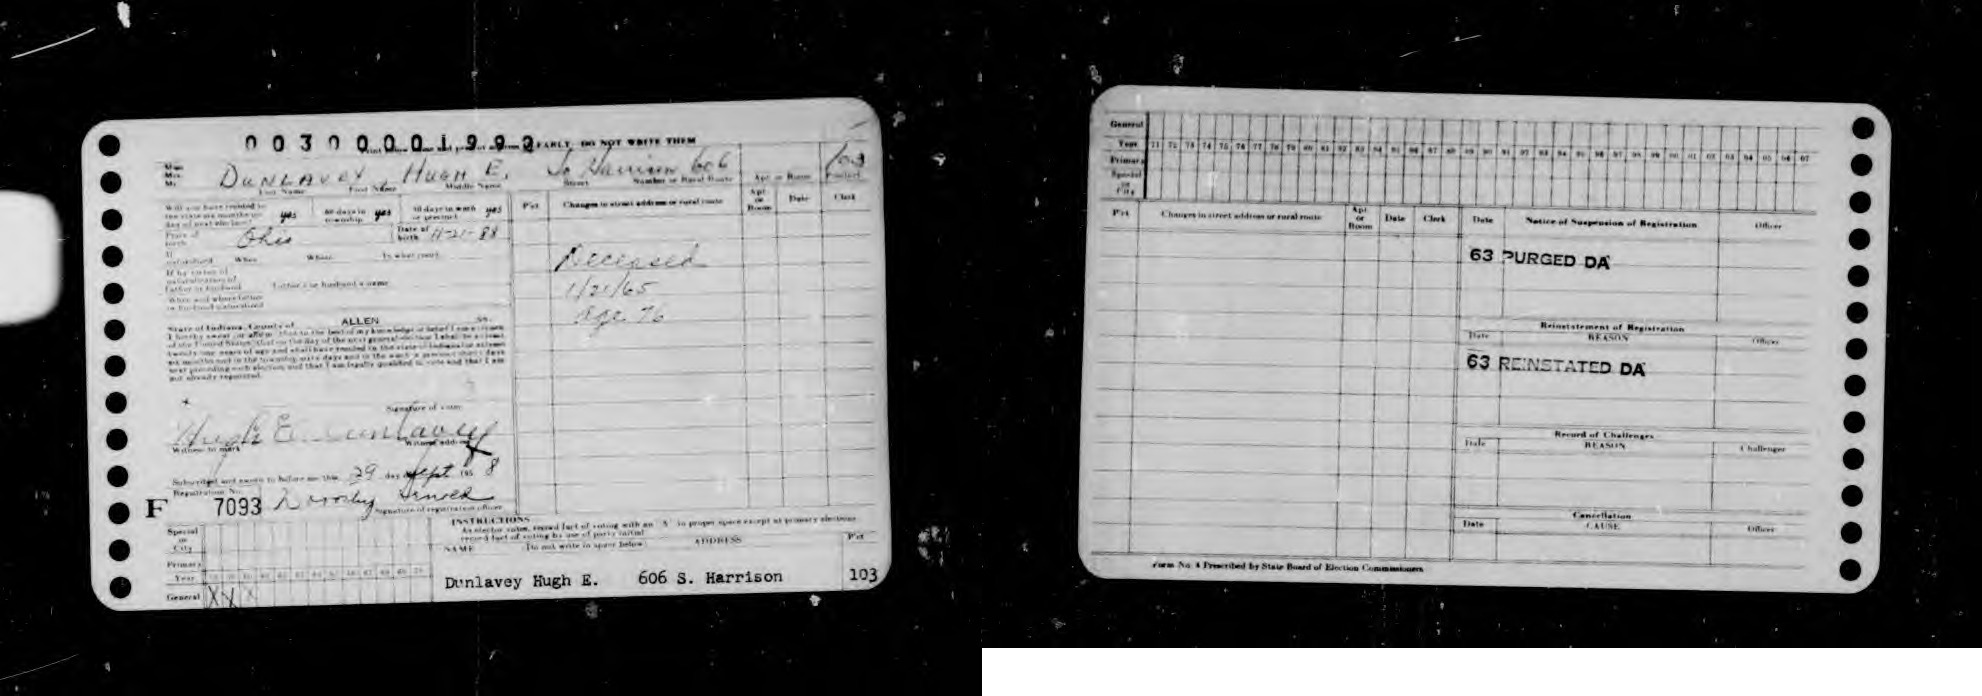 0030000199
EARLY, DO NOT WRITE THEM
DUNLAVEY, HUGH E. So Harrison 606 103
Last Name First Name Middle Name Street Number or Rural Route Apt. or Room Precinct
Will you have resided in the state six months on day of next election? yes 60 days in township yes 30 days in ward or precinct yes
Place of birth Ohio Date of birth 11-21-88
If naturalized When Where In what court
If by virtue of naturalization of father or husband Father's or husband's name
When and where father or husband naturalized
Pct Changes in street address or rural route Apt or Room Date Clerk
Deceased
1/21/65
Age 76
State of Indiana, County of ALLEN SS.
I hereby swear (or affirm) that to the best of my knowledge or belief I am a citizen
of the United States; that on the day of the next general election I shall be at least
twenty-one years of age and shall have resided in the state of Indiana for at least
six months and in the township sixty days and in the ward or precinct thirty days
next preceding such election and that I am legally qualified to vote and that I am
not already registered.
Signature of voter
Hugh E. Dunlavey
Witness to mark Witness address
Subscribed and sworn to before me this 29 day of Sept 1958
Registration No.
F 7093 Dorothy
Signature of registration officer
INSTRUCTIONS
As elector votes, record fact of voting with an "X" in proper space except at primary elections
record fact of voting by use of party initial
NAME (Do not write in space below) ADDRESS Pct
Special or City
Primary
Year
General X X X
Dunlavey Hugh E. 606 S. Harrison 103
General
Year 71 72 73 74 75 76 77 78 79 80 81 82 83 84 85 86 87 88 89 90 91 92 93 94 95 96 97 98 99 00 01 02 03 04 05 06 07
Primary
Special or City
Pct Changes in street address or rural route Apt. or Room Date Clerk
Date Notice of Suspension of Registration Officer
63 PURGED DA
Reinstatement of Registration
Date REASON Officer
63 REINSTATED DA
Record of Challenges
Date REASON Challenger
Cancellation
Date CAUSE Officer
Form No. 4 Prescribed by State Board of Election Commissioners